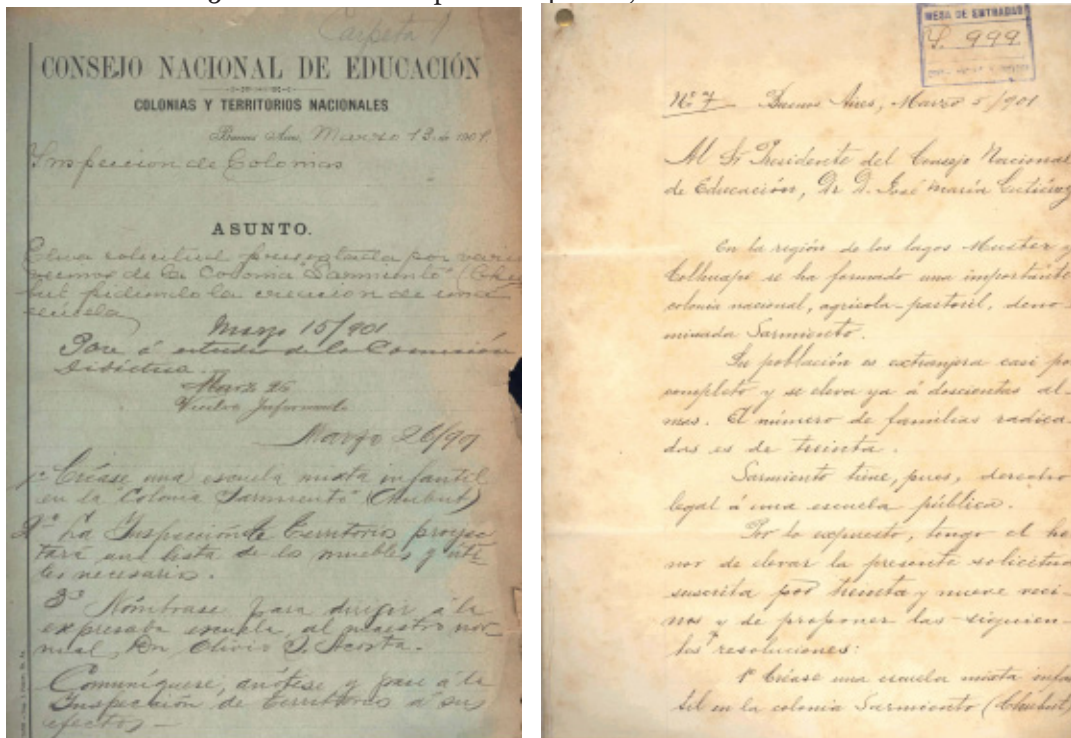 Carpeta 1
CONSEJO NACIONAL DE EDUCACIÓN
COLONIAS Y TERRITORIOS NACIONALES
Buenos Aires, Marzo 13 de 1901.
Inspeccion de Colonias
ASUNTO.
Eleva solicitud presentada por varios
vecinos de la Colonia "Sarmiento" (Chu
but pidiendo la creacion de una
escuela
Marzo 15/901
Pase á estudio de la Comisión
Didáctica.
Marzo 26/901
1º Créase una escuela mixta infantil
en la "Colonia Sarmiento" (Chubut)
2º La Inspección de Territorios proyec
tará una lista de los muebles y úti-
les necesarios.
3º Nómbrase para dirigir á la
expresada escuela, al maestro nor
mal, Don Olivio S. Acosta.
Comuníquese, anótese y pase á la
Inspección de Territorios á sus
efectos -
MESA DE ENTRADAS
999
Nº 7 Buenos Aires, Marzo 5/901
Al Sr Presidente del Consejo Nacional
de Educación, Dr D. José María Gutiérrez
En la región de los lagos Muster y
Colhuapi se ha formado una importante
colonia nacional, agrícola-pastoril, deno-
minada Sarmiento.
Su población es extranjera casi por
completo y se eleva ya á doscientas al-
mas. El número de familias radica-
das es de treinta.
Sarmiento tiene, pues, derecho
legal á una escuela pública.
Por lo expuesto, tengo el ho
nor de elevar la presente solicitud
suscrita por treinta y nueve veci-
nos y de proponer las siguien-
tes resoluciones:
1º Créase una escuela mixta infan
til en la colonia Sarmiento (Chubut)